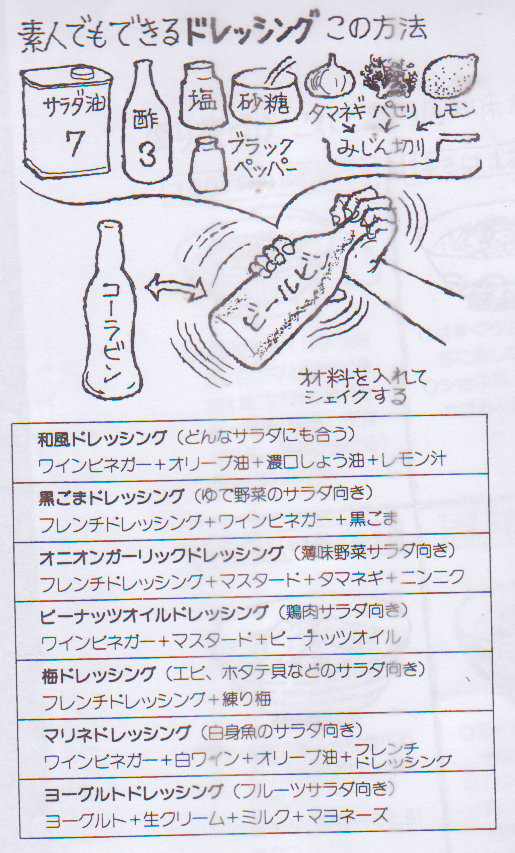 素人でもできるドレッシングこの方法
サラダ油
7
酢
3
塩
砂糖
ブラック
ペッパー
タマネギ パセリ レモン
みじん切り
コーラビン
コーラビン
材料を入れて
シェイクする
和風ドレッシング（どんなサラダにも合う）
ワインビネガー＋オリーブ油＋濃口しょう油＋レモン汁
黒ごまドレッシング（ゆで野菜のサラダ向き）
フレンチドレッシング＋ワインビネガー＋黒ごま
オニオンガーリックドレッシング（薄味野菜サラダ向き）
フレンチドレッシング＋マスタード＋タマネギ＋ニンニク
ピーナッツオイルドレッシング（鶏肉サラダ向き）
ワインビネガー＋マスタード＋ピーナッツオイル
梅ドレッシング（エビ、ホタテ貝などのサラダ向き）
フレンチドレッシング＋練り梅
マリネドレッシング（白身魚のサラダ向き）
ワインビネガー＋白ワイン＋オリーブ油＋フレンチドレッシング
ヨーグルトドレッシング（フルーツサラダ向き）
ヨーグルト＋生クリーム＋ミルク＋マヨネーズ